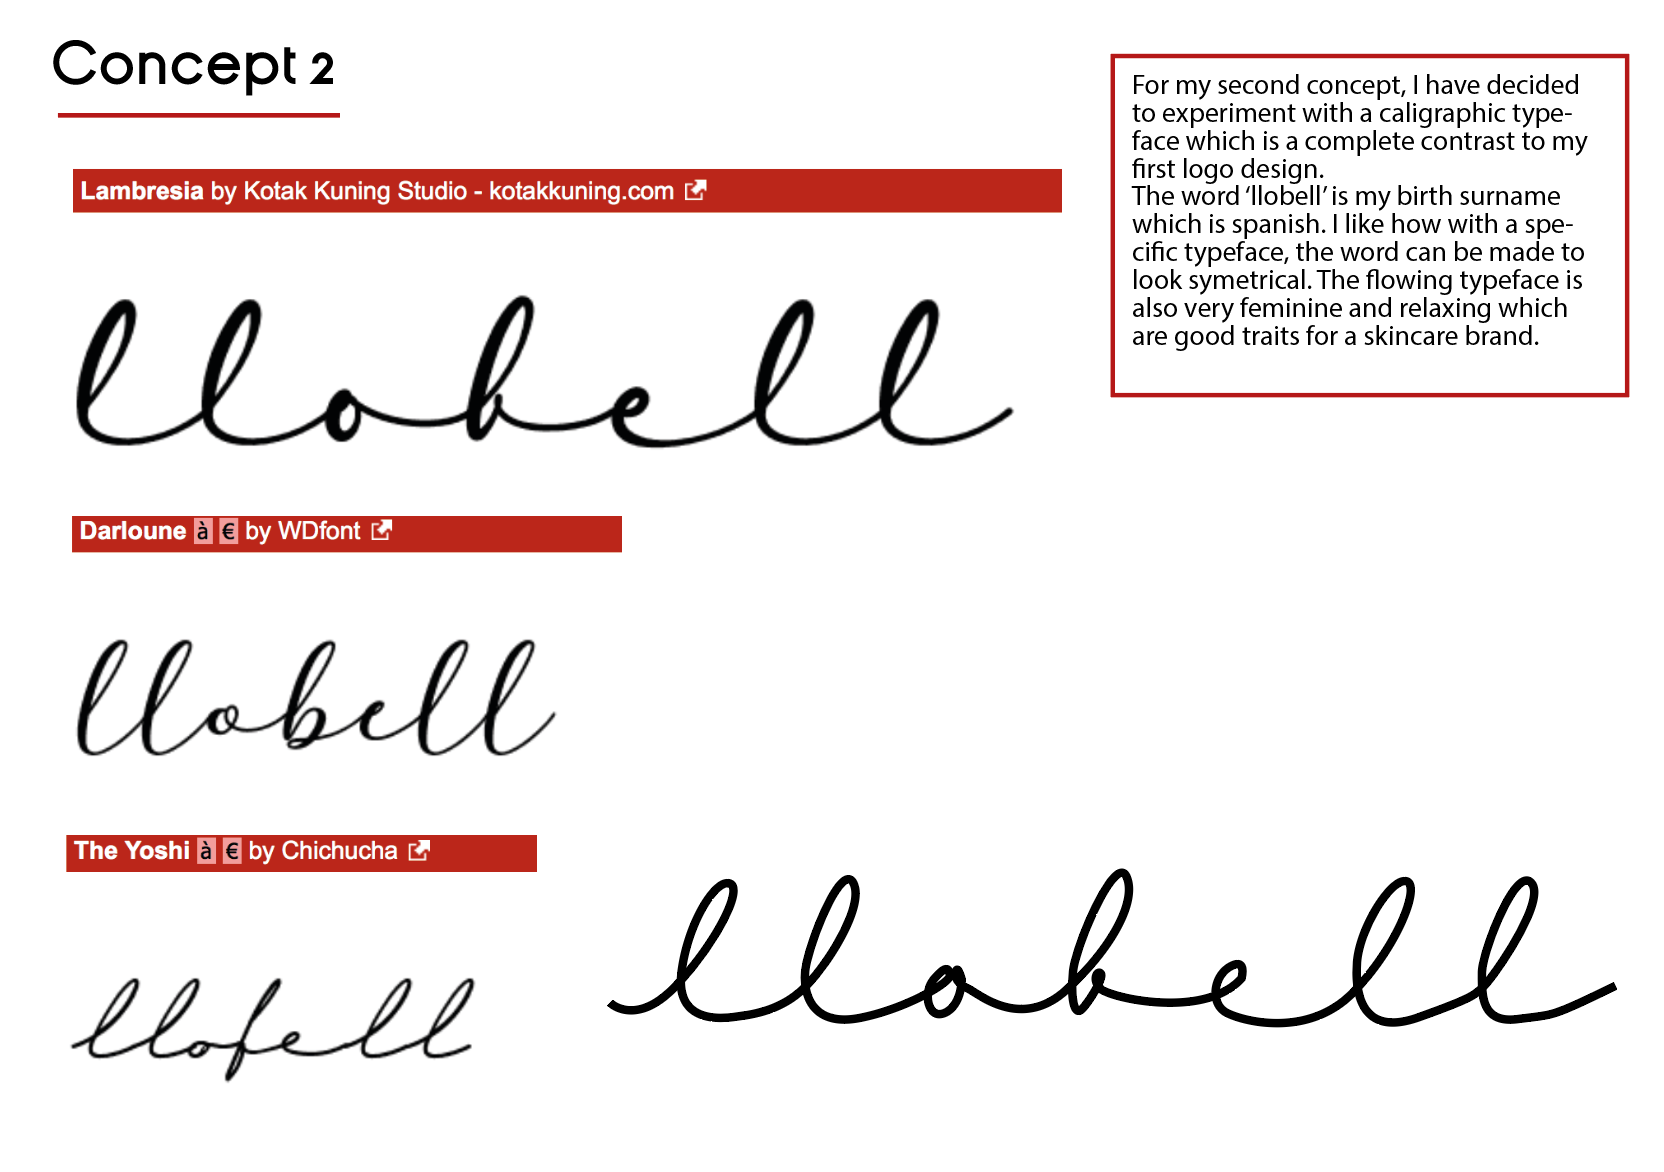 Concept 2
For my second concept, I have decided
to experiment with a caligraphic type-
face which is a complete contrast to my
first logo design.
The word ‘llobell’ is my birth surname
which is spanish. I like how with a spe-
cific typeface, the word can be made to
look symetrical. The flowing typeface is
also very feminine and relaxing which
are good traits for a skincare brand.
Lambresia by Kotak Kuning Studio - kotakkuning.com
llobell
Darloune à € by WDfont
llobell
The Yoshi à € by Chichucha
llobell
llobell